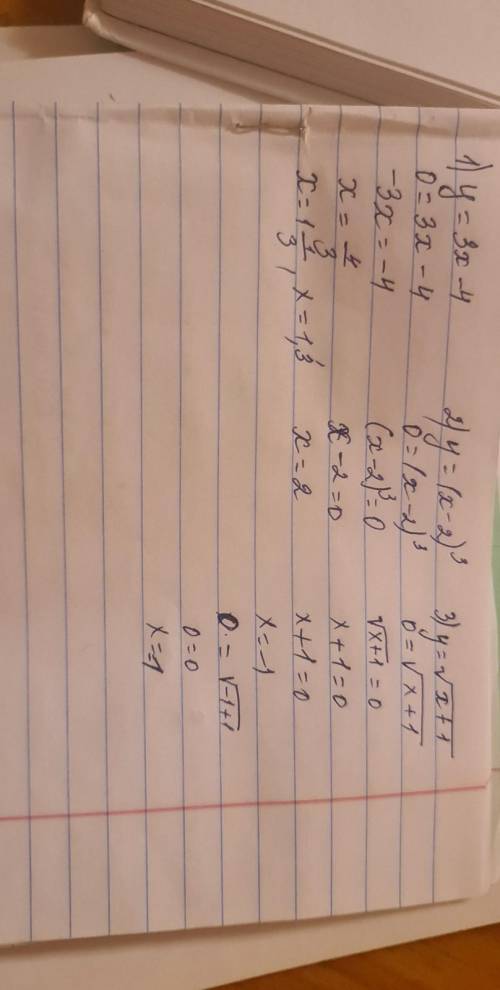 1) y = 3x - 4
0 = 3x - 4
-3x = -4
x = 4/3
x = 1 1/3, x = 1,3
2) y = (x-2)³
0 = (x-2)³
(x-2)³ = 0
x - 2 = 0
x = 2
3) y = √x+1
0 = √x+1
√x+1 = 0
x+1 = 0
x+1 = 0
x = -1
0 = √-1+1
0 = 0
x = -1